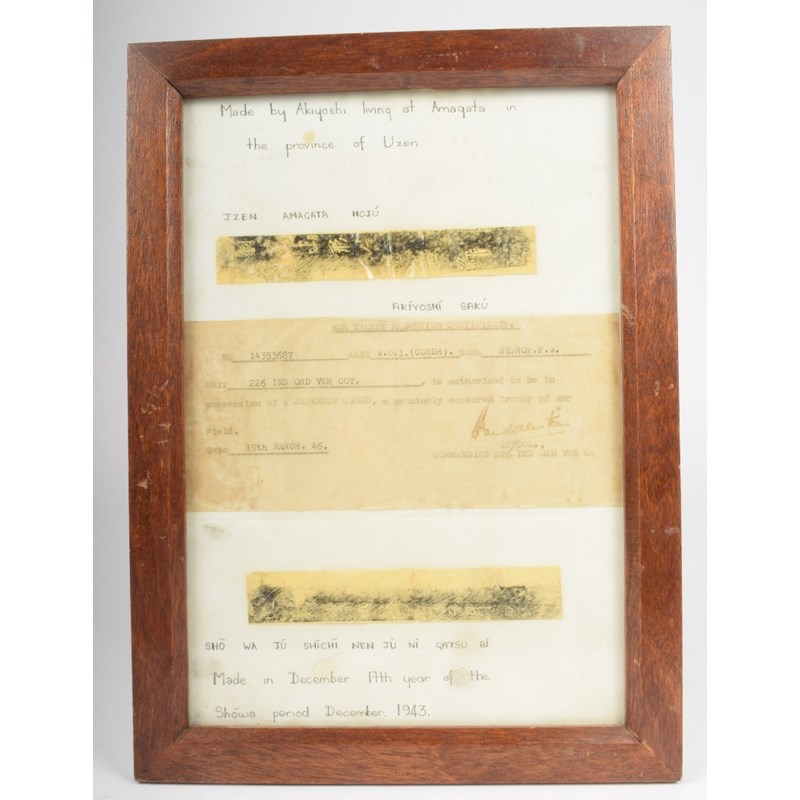 Made by Akiyoshi living at Amagata in
the province of Uzen
JZEN AMAGATA NOJÚ
AKÍYOSHÍ SAKÚ
WAR TROPHY POSSESSION CERTIFICATE.
NO 14353687 RANK W.O.1.(CONDR). NAME BISHOP.F.
UNIT 226 IND ORD VEH COY. , is authorised to be in
possession of a JAPANESE SWORD, a genuinely captured Trophy of war
Field.
Date 19th MARCH. 46. LT/COL.,
COMMANDING 226 IND ORD VEH
SHŌ WA JÚ SHÍCHÍ NEN JÚ NÍ GATSU BÍ
Made in December 17th year of the
Shōwa period December. 1943.